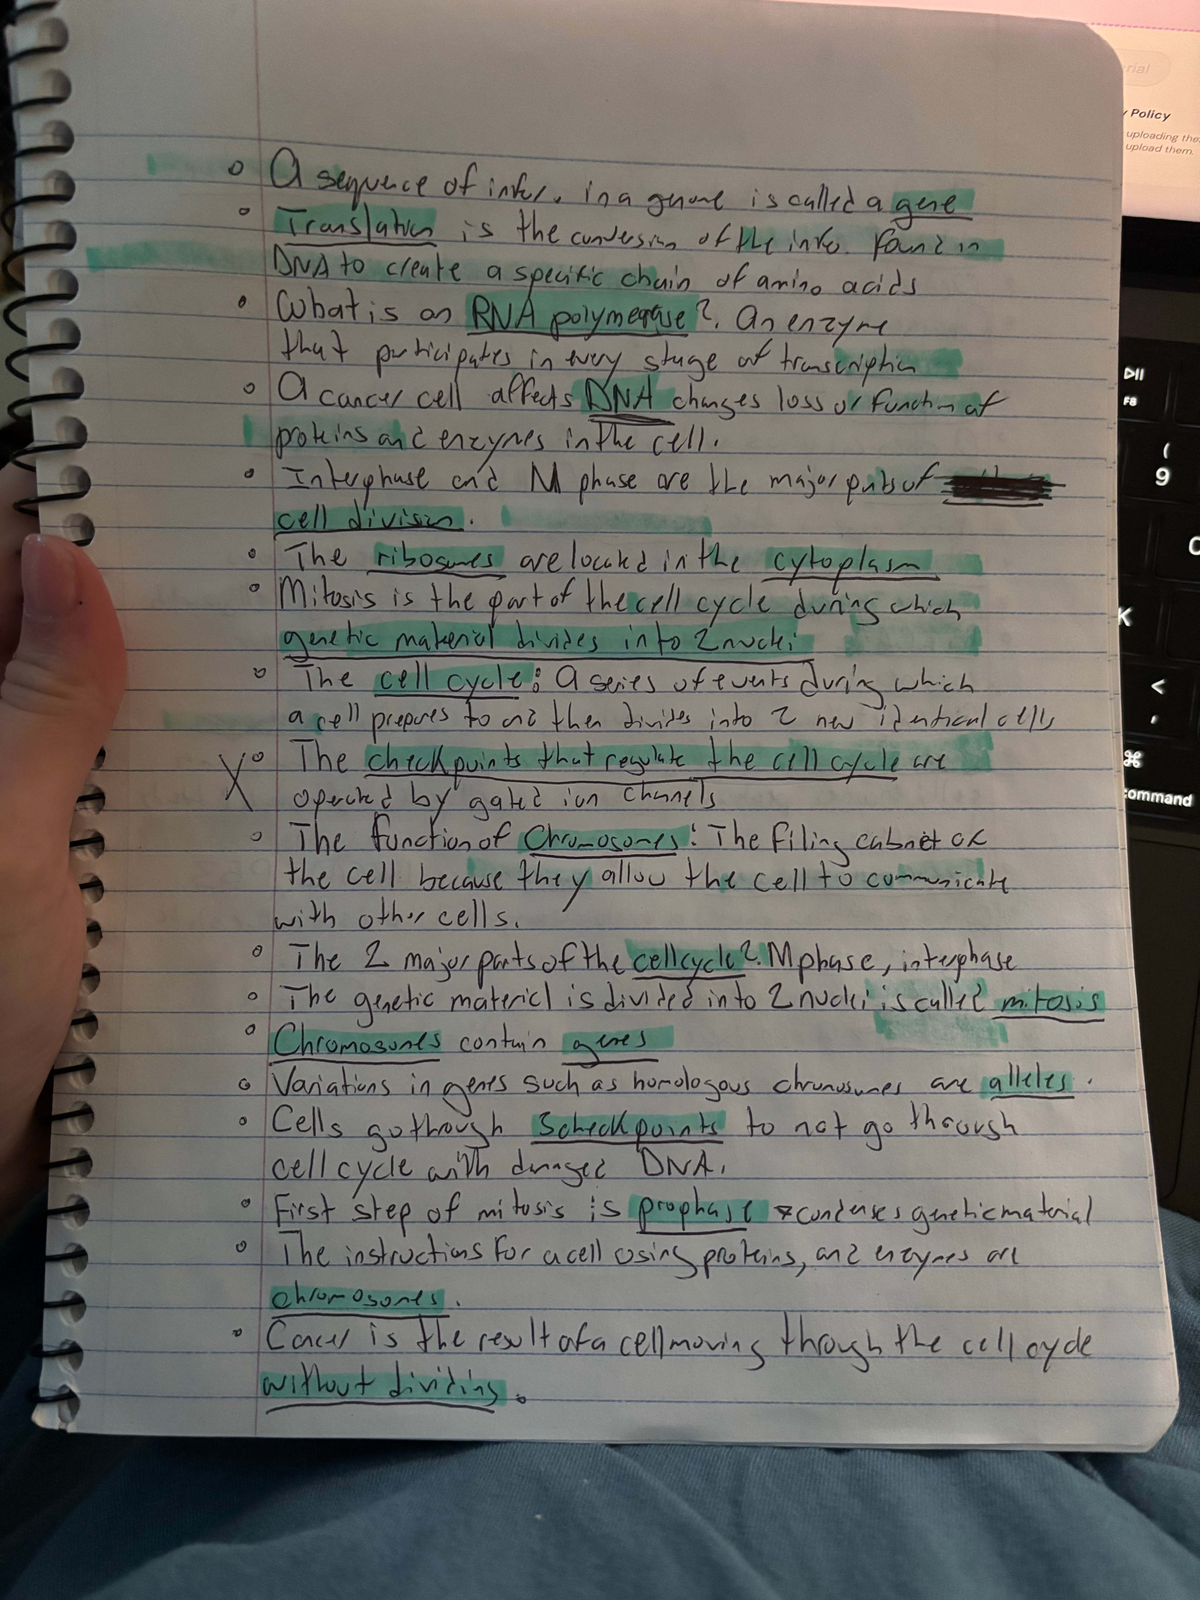 ° A sequence of infor. in a genome is called a gene
° Translation is the conversion of the info. found in
DNA to create a specific chain of amino acids
° What is an RNA polymerase?. An enzyme
that participates in every stage of transcription
° A cancer cell affects DNA changes loss or function of
proteins and enzymes in the cell.
° Interphase and M phase are the major parts of
cell division.
° The ribosomes are located in the cytoplasm
° Mitosis is the part of the cell cycle during which
genetic material divides into 2 nuclei
° The cell cycle: A series of events during which
a cell prepares to and then divides into 2 new identical cells
X ° The checkpoints that regulate the cell cycle are
operated by gated ion channels
° The function of Chromosomes: The filing cabnet of
the cell because they allow the cell to communicate
with other cells.
° The 2 major parts of the cell cycle?. M phase, interphase
° The genetic material is divided into 2 nuclei is called mitosis
° Chromosomes contain genes
° Variations in genes such as homologous chromosomes are alleles.
° Cells go through 3 checkpoints to not go through
cell cycle with damaged DNA.
° First step of mitosis is prophase condenses genetic material
° The instructions for a cell using proteins, and enzymes are
chromosomes.
° Cancer is the result of a cell moving through the cell cycle
without dividing.
rial
Policy
uploading the
upload them.
F8
(
9
K
<
,
⌘
command